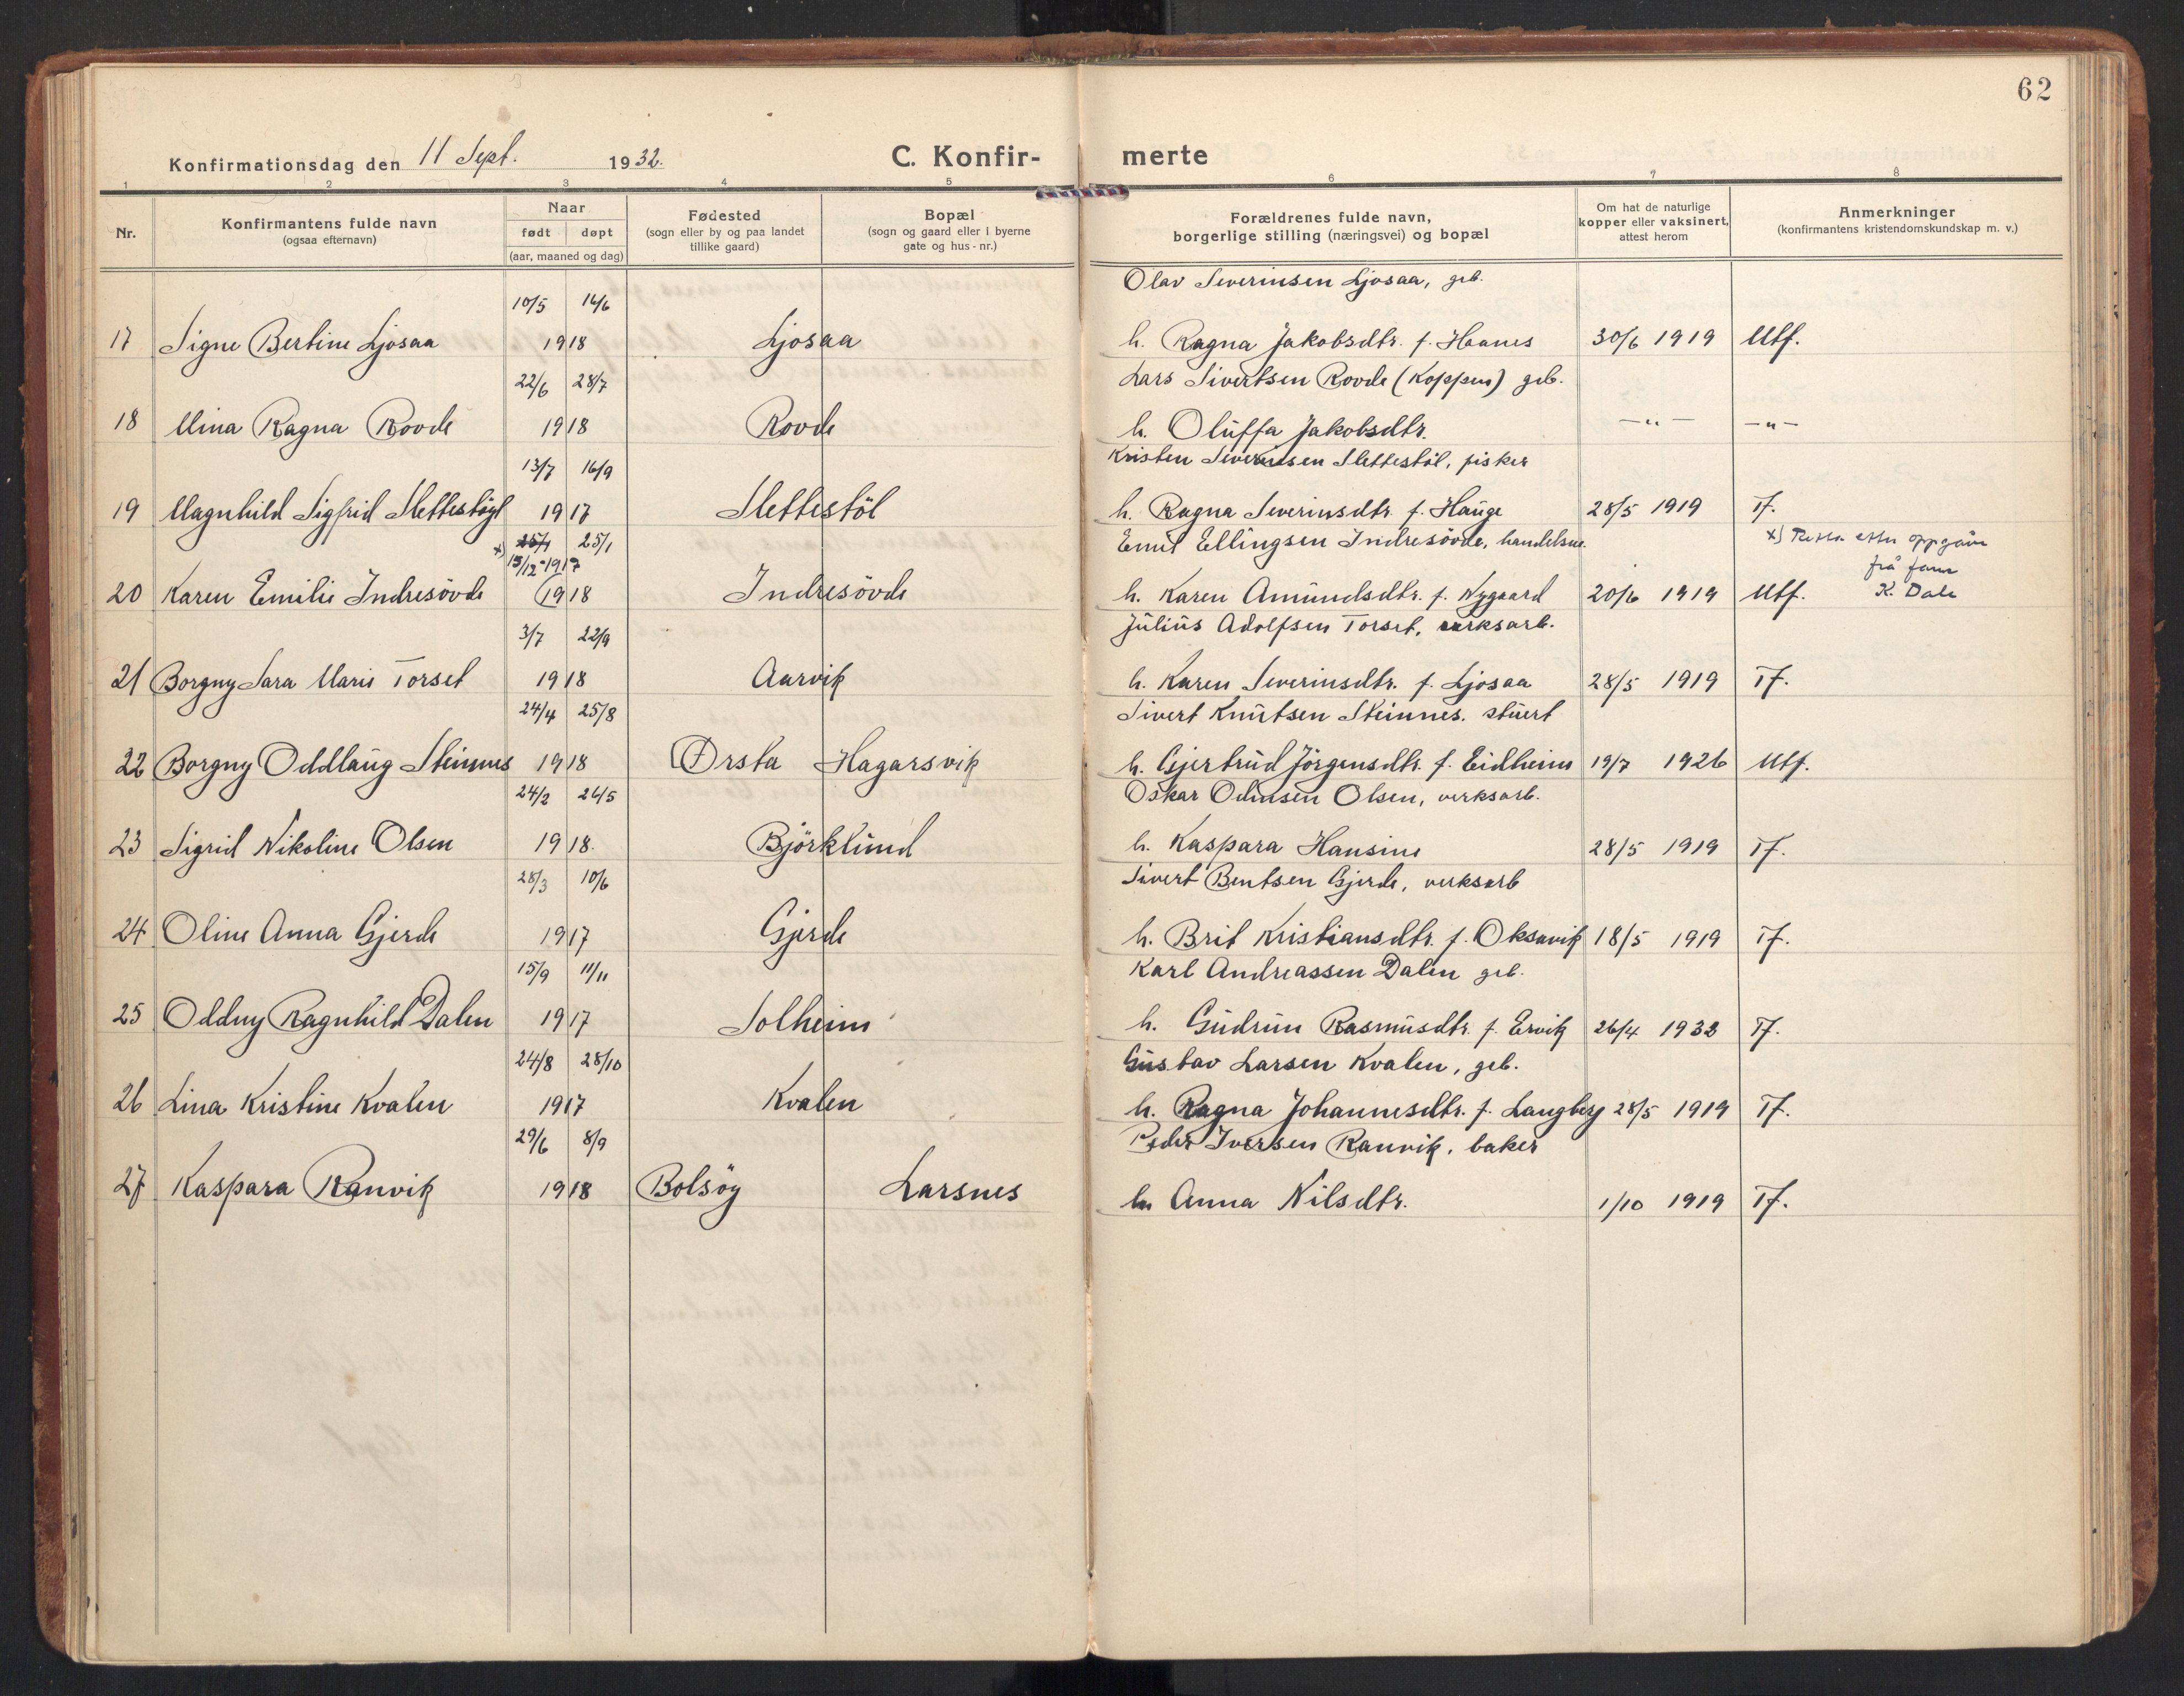 62
Konfirmationsdag den 11 Sept. 1932.
C. Konfir- merte
1 2 3 4 5 6 7 8
Nr. Konfirmantens fulde navn (ogsaa efternavn) Naar født døpt (aar, maaned og dag) Fødested (sogn eller by og paa landet tillike gaard) Bopæl (sogn og gaard eller i byerne gate og hus-nr.) Forældrenes fulde navn, borgerlige stilling (næringsvei) og bopæl Om hat de naturlige kopper eller vaksinert, attest herom Anmerkninger (konfirmantens kristendomskundskap m. v.)
10/5 16/6 Olav Severinsen Ljosaa, gb.
17 Signe Bertine Ljosaa 1918 Ljosaa h. Ragna Jakobsdtr. f. Haanes 30/6 1919 Mtf.
22/6 28/7 Lars Sivertsen Rovde (Koppen) gb.
18 Mina Ragna Rovde 1918 Rovde h. Oluffa Jakobsdtr. —"— —"—
13/7 16/9 Kristen Severinsen Slettestöl, fisker
19 Magnhild Sigfrid Slettestögl 1917 Slettestöl h. Ragna Severinsdtr. f. Hauge 28/5 1919 Tf.
x) 25/1 25/1 Emil Ellingsen Indresövde, handelsm. x) Retta etter oppgåve
15/12-1917 frå
20 Karen Emilie Indresövde (1918 Indresövde h. Karen Amundsdtr. f. Nygaard 20/6 1919 Mtf. K. Dale
3/7 22/9 Julius Adolfsen Torset, verksarb.
21 Borgny Sara Marie Torset 1918 Aarvik h. Karen Severinsdtr. f. Ljosaa 28/5 1919 Tf.
24/4 25/8 Sivert Knutsen Steinnes. stuert
22 Borgny Oddlaug Steinnes 1918 Ørsta Hagarsvik h. Gjertrud Jörgensdtr. f. Eidheim 19/7 1926 Mtf.
24/2 26/5 Oskar Odinsen Olsen, verksarb.
23 Sigrid Nikoline Olsen 1918. Björklund h. Kaspara Hansine 28/5 1919 Tf.
28/3 10/6 Sivert Bentsen Gjerde, verksarb
24 Oline Anna Gjerde 1917 Gjerde h. Brit Kristiansdtr. f. Oksavik 18/5 1919 Tf.
15/9 11/11 Karl Andreassen Dalen gb.
25 Oddny Ragnhild Dalen 1917 Solheim h. Gudrun Rasmusdtr. f. Ervik 26/4 1932 Tf.
24/8 28/10 Gustav Larsen Kvalen, gb.
26 Lina Kristine Kvalen 1917 Kvalen h. Ragna Johannesdtr. f. Langberg 28/5 1919 Tf.
29/6 8/9 Peder Iversen Ranvik, baker
27 Kaspara Ranvik 1918 Bolsöy Larsnes h Anna Nilsdtr. 1/10 1919 Tf.